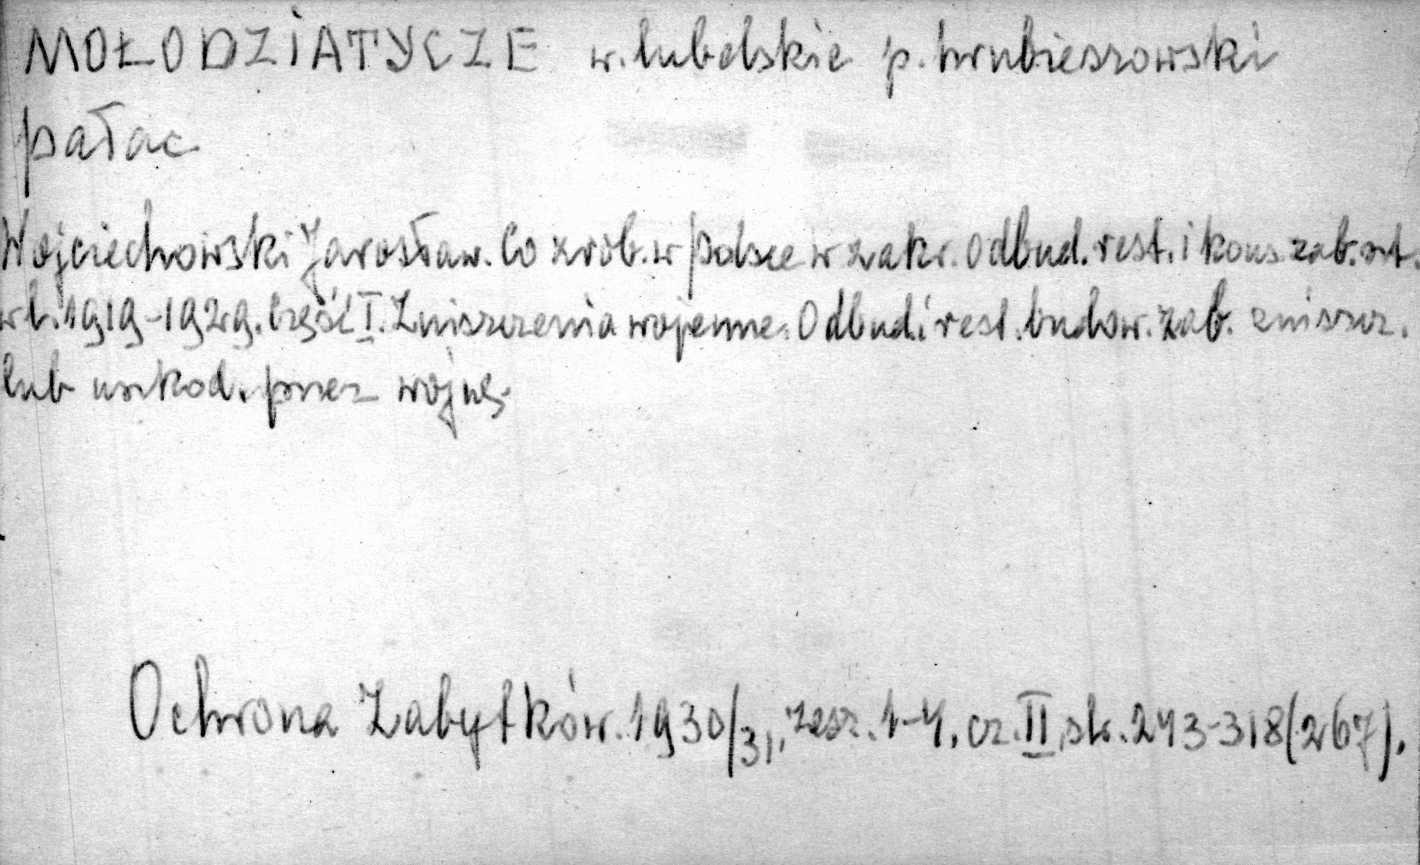 MOŁODZIATYCZE w. lubelskie p. hrubieszowski
pałac
Wojciechowski Jarosław. Co zrob. w Polsce w zakr. odbud. rest. i kons. zab. szt.
w l. 1919-1929. Część I. Zniszczenia wojenne. Odbud. i rest. budow. zab. zniszcz.
lub uszkod. przez wojnę.
Ochrona Zabytków. 1930/31, zesz. 1-4, cz. II, str. 243-318 (267).